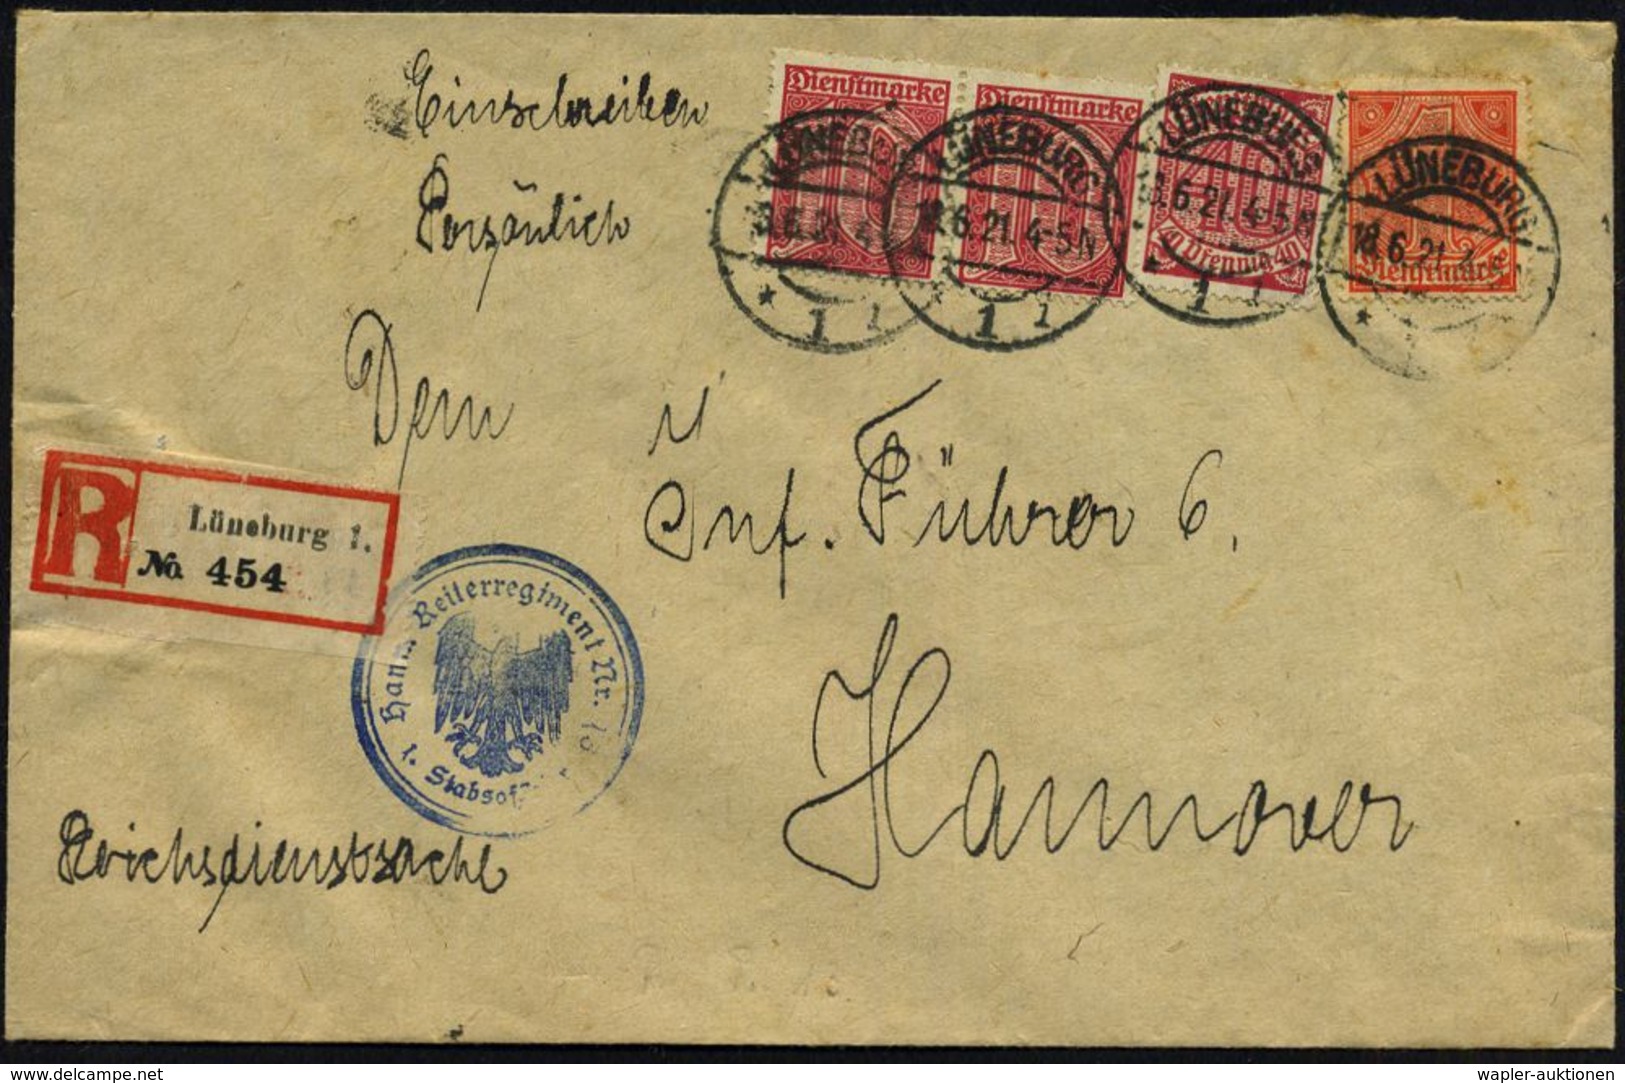 Einschreiben
Persönlich
Dienstmarke
10
Dienstmarke
10
40
40 Pfennig 40
1
Dienstmarke
LÜNEBURG
18.6.21. 4-5 N
* 1 1
LÜNEBURG
18.6.21. 4-5 N
* 1 1
LÜNEBURG
18.6.21. 4-5 N
* 1 1
LÜNEBURG
18.6.21. 4-5 N
*
Dem
Inf. Führer 6,
Hannover
R
Lüneburg 1.
No. 454
Hann. Reiterregiment Nr.
1. Stabsoff
Reichsdienstsache
www.delcampe.net
wapler-auktionen